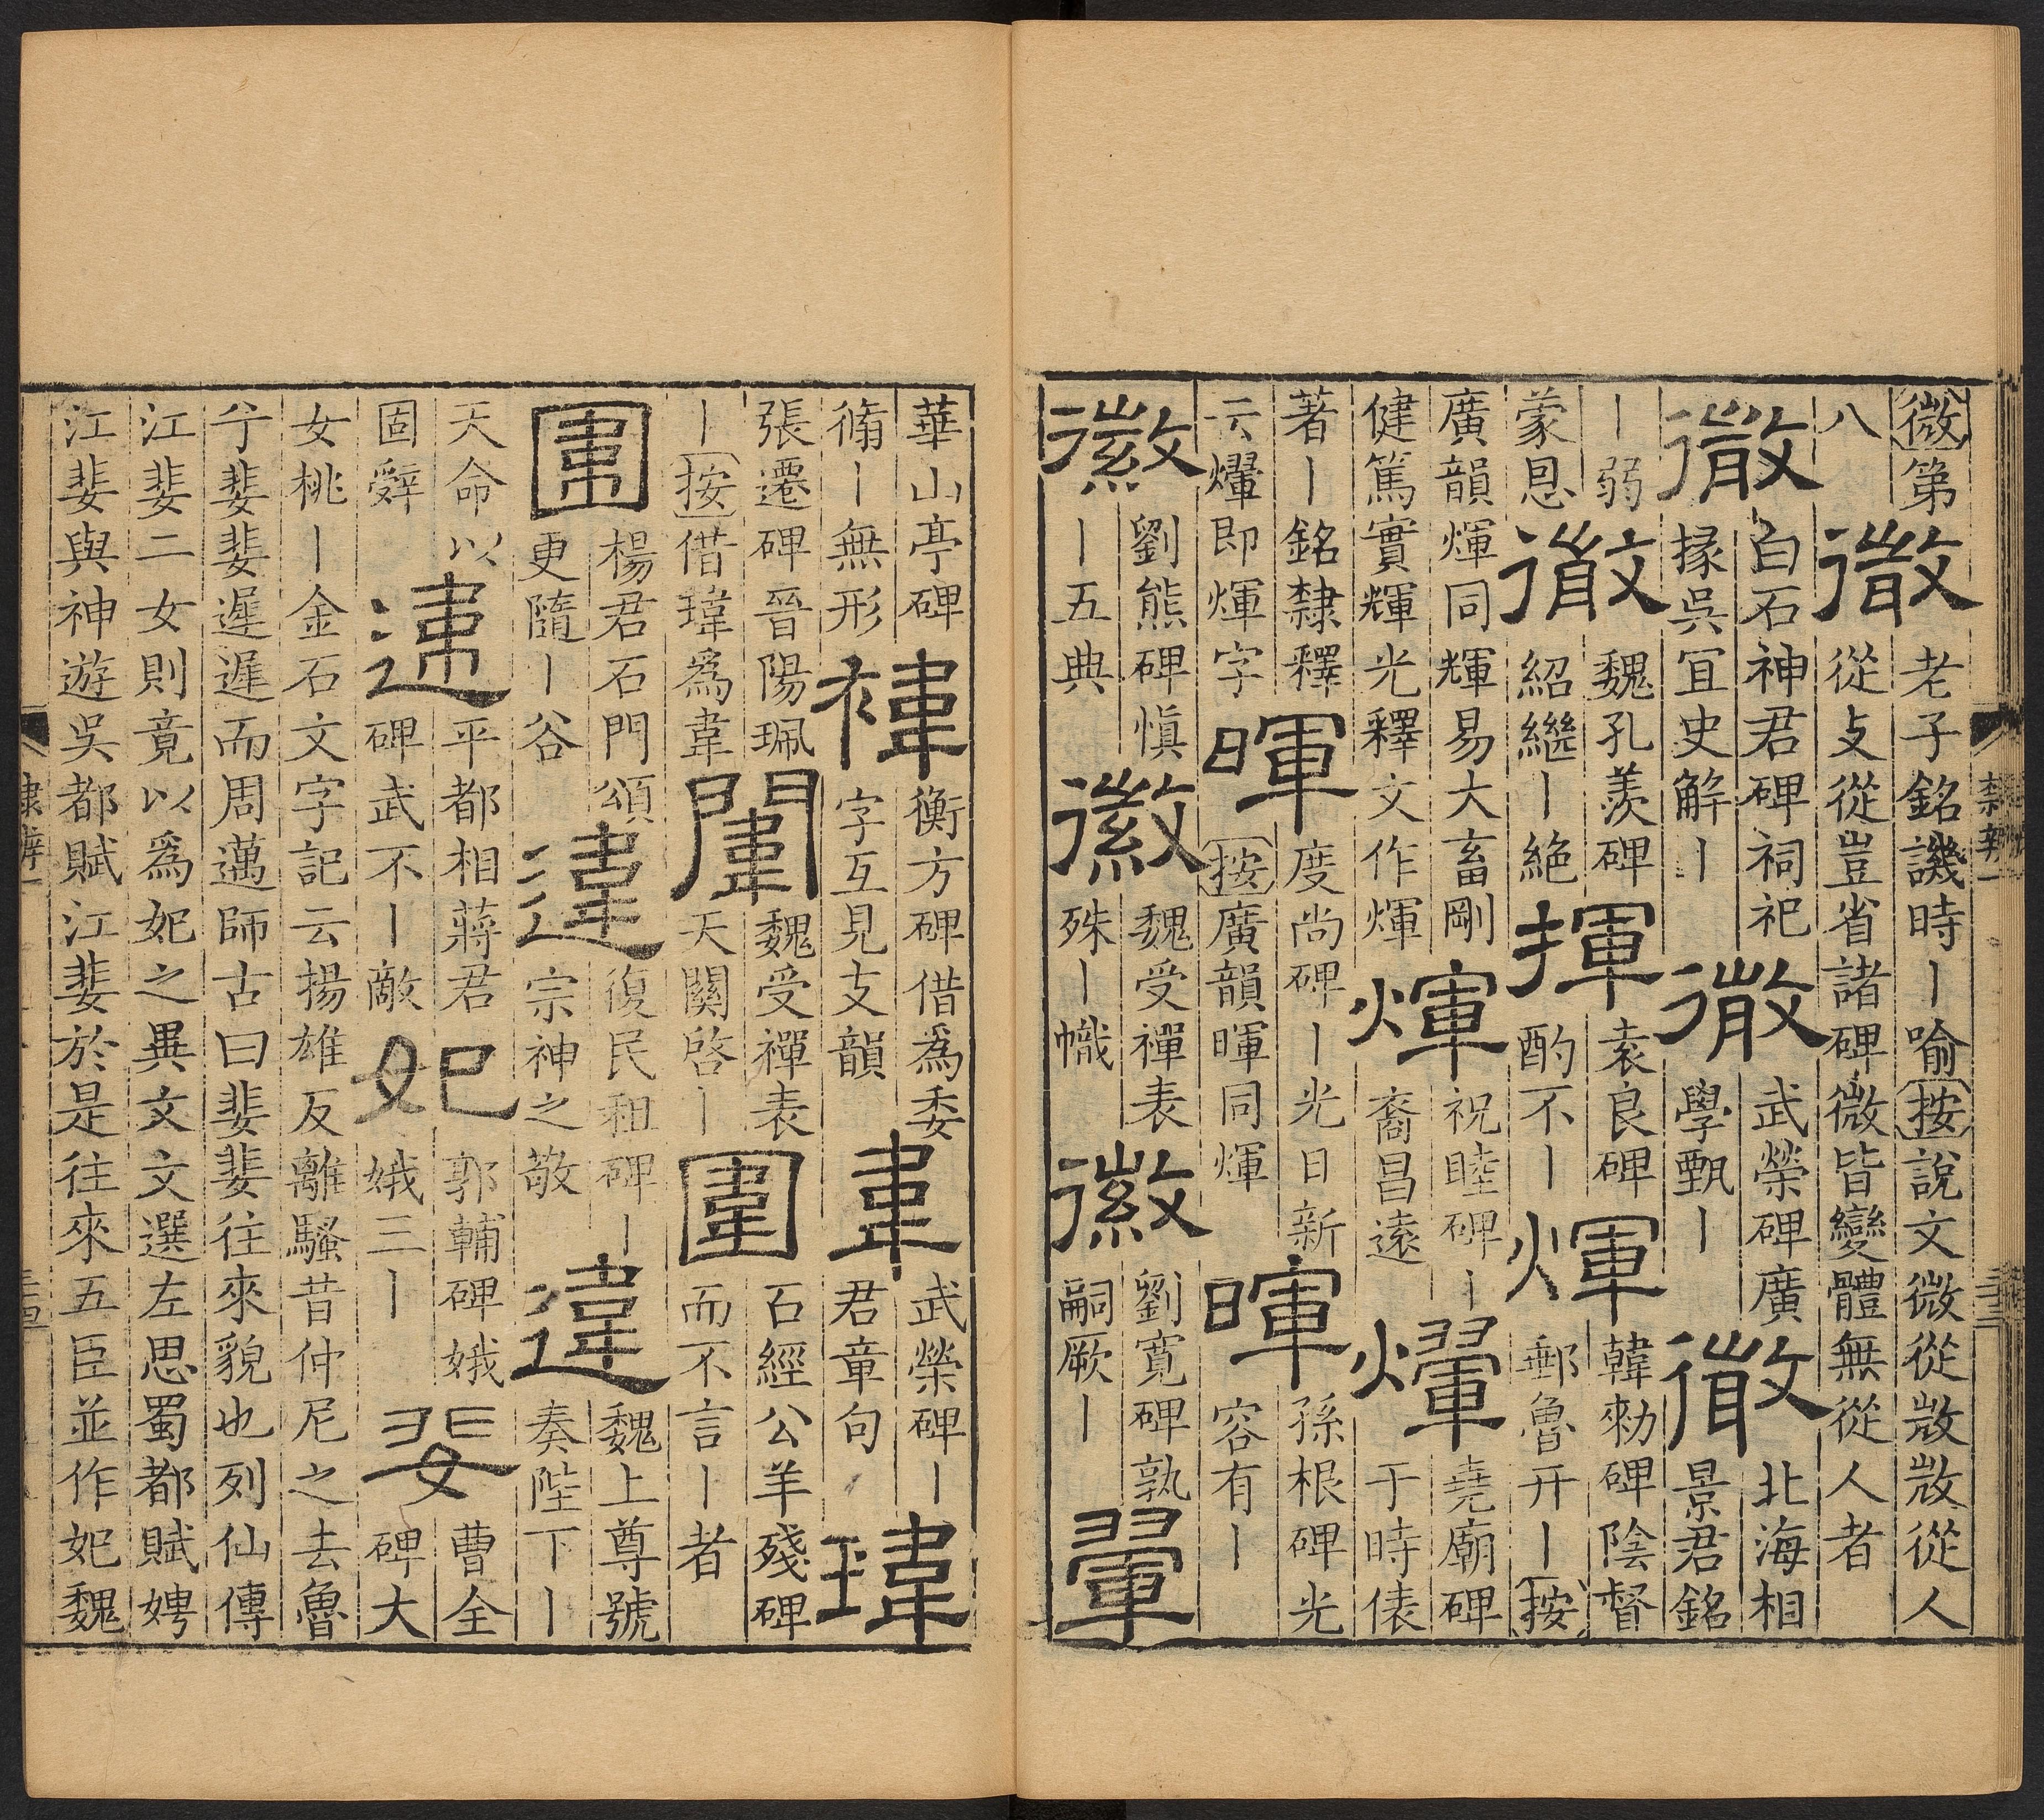 微第八微老子銘譏時丨喻按說文微從敚敚從人從攴從豈省諸碑微皆變體無從人者
微白石神君碑祠祀掾吳宜史解丨微武榮碑廣學甄丨微北海相景君銘
丨弱蒙恩微魏孔羨碑紹繼丨絶揮袁良碑酌不丨煇韓勑碑陰督郵魯开丨按
廣韻煇同輝易大畜剛健篤實輝光釋文作煇煇祝睦碑丨裔昌遠𤑔堯廟碑于時俵
著丨銘隸釋云𤑔即煇字暉度尚碑丨光日新按廣韻暉同煇暉孫根碑光容有丨
徽劉熊碑愼丨五典徽魏受禪表殊丨幟徽劉寬碑孰嗣厥丨翬
隸辨一
三十三
華山亭碑脩丨無形褘衡方碑借爲委字互見支韻韋武榮碑丨君章句瑋
張遷碑晉陽珮丨按借瑋爲韋闈魏受禪表天關啓丨圍石經公羊殘碑而不言丨者
圍楊君石門頌更隨丨谷違復民租碑丨宗神之敬違魏上尊號奏陛下丨
天命以固辤違平都相蔣君碑武不丨敵妃郭輔碑娥娥三丨婓曹全碑大
女桃丨金石文字記云揚雄反離騷昔仲尼之去魯兮婓婓遲遲而周邁師古曰婓婓往來貌也列仙傳
江婓二女則竟以爲妃之異文文選左思蜀都賦娉江婓與神遊吳都賦江婓於是往來五臣並作妃魏
隸辨一
三十四